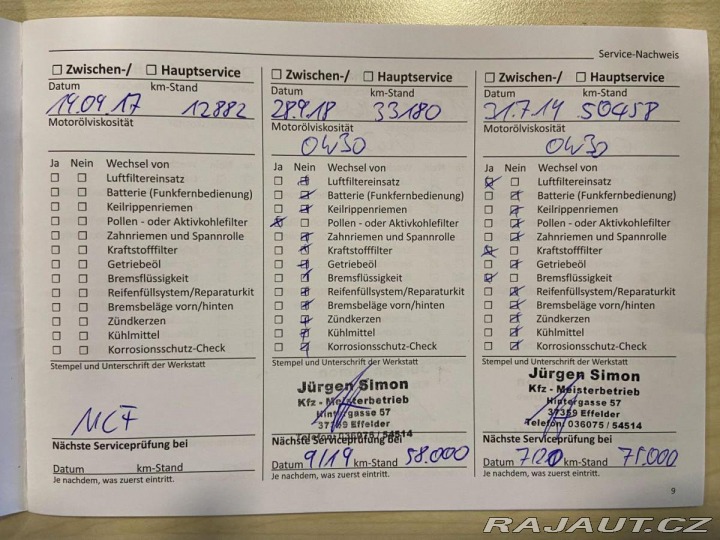 Service-Nachweis
☐ Zwischen-/ ☐ Hauptservice
Datum km-Stand
19.09.17 12882
Motorölviskosität
Ja Nein Wechsel von
☐ ☐ Luftfiltereinsatz
☐ ☐ Batterie (Funkfernbedienung)
☐ ☐ Keilrippenriemen
☐ ☐ Pollen - oder Aktivkohlefilter
☐ ☐ Zahnriemen und Spannrolle
☐ ☐ Kraftstofffilter
☐ ☐ Getriebeöl
☐ ☐ Bremsflüssigkeit
☐ ☐ Reifenfüllsystem/Reparaturkit
☐ ☐ Bremsbeläge vorn/hinten
☐ ☐ Zündkerzen
☐ ☐ Kühlmittel
☐ ☐ Korrosionsschutz-Check
Stempel und Unterschrift der Werkstatt
MCF
Nächste Serviceprüfung bei
Datum km-Stand
Je nachdem, was zuerst eintritt.
☐ Zwischen-/ ☐ Hauptservice
Datum km-Stand
28.9.18 33180
Motorölviskosität
0W30
Ja Nein Wechsel von
☐ ☒ Luftfiltereinsatz
☐ ☒ Batterie (Funkfernbedienung)
☐ ☒ Keilrippenriemen
☒ ☐ Pollen - oder Aktivkohlefilter
☐ ☒ Zahnriemen und Spannrolle
☐ ☒ Kraftstofffilter
☐ ☒ Getriebeöl
☐ ☒ Bremsflüssigkeit
☐ ☒ Reifenfüllsystem/Reparaturkit
☐ ☒ Bremsbeläge vorn/hinten
☐ ☒ Zündkerzen
☐ ☒ Kühlmittel
☐ ☒ Korrosionsschutz-Check
Stempel und Unterschrift der Werkstatt
Jürgen Simon
Kfz - Meisterbetrieb
Hintergasse 57
37359 Effelder
Telefon: 036075 / 54514
Nächste Serviceprüfung bei
Datum 9/19 km-Stand 58.000
Je nachdem, was zuerst eintritt.
☐ Zwischen-/ ☐ Hauptservice
Datum km-Stand
31.7.19 50458
Motorölviskosität
0W30
Ja Nein Wechsel von
☒ ☐ Luftfiltereinsatz
☐ ☒ Batterie (Funkfernbedienung)
☐ ☒ Keilrippenriemen
☐ ☒ Pollen - oder Aktivkohlefilter
☐ ☒ Zahnriemen und Spannrolle
☒ ☐ Kraftstofffilter
☐ ☒ Getriebeöl
☒ ☐ Bremsflüssigkeit
☐ ☒ Reifenfüllsystem/Reparaturkit
☐ ☒ Bremsbeläge vorn/hinten
☐ ☒ Zündkerzen
☐ ☒ Kühlmittel
☐ ☒ Korrosionsschutz-Check
Stempel und Unterschrift der Werkstatt
Jürgen Simon
Kfz - Meisterbetrieb
Hintergasse 57
37359 Effelder
Telefon: 036075 / 54514
Nächste Serviceprüfung bei
Datum 7/20 km-Stand 75.000
Je nachdem, was zuerst eintritt.
9
RAJAUT.CZ